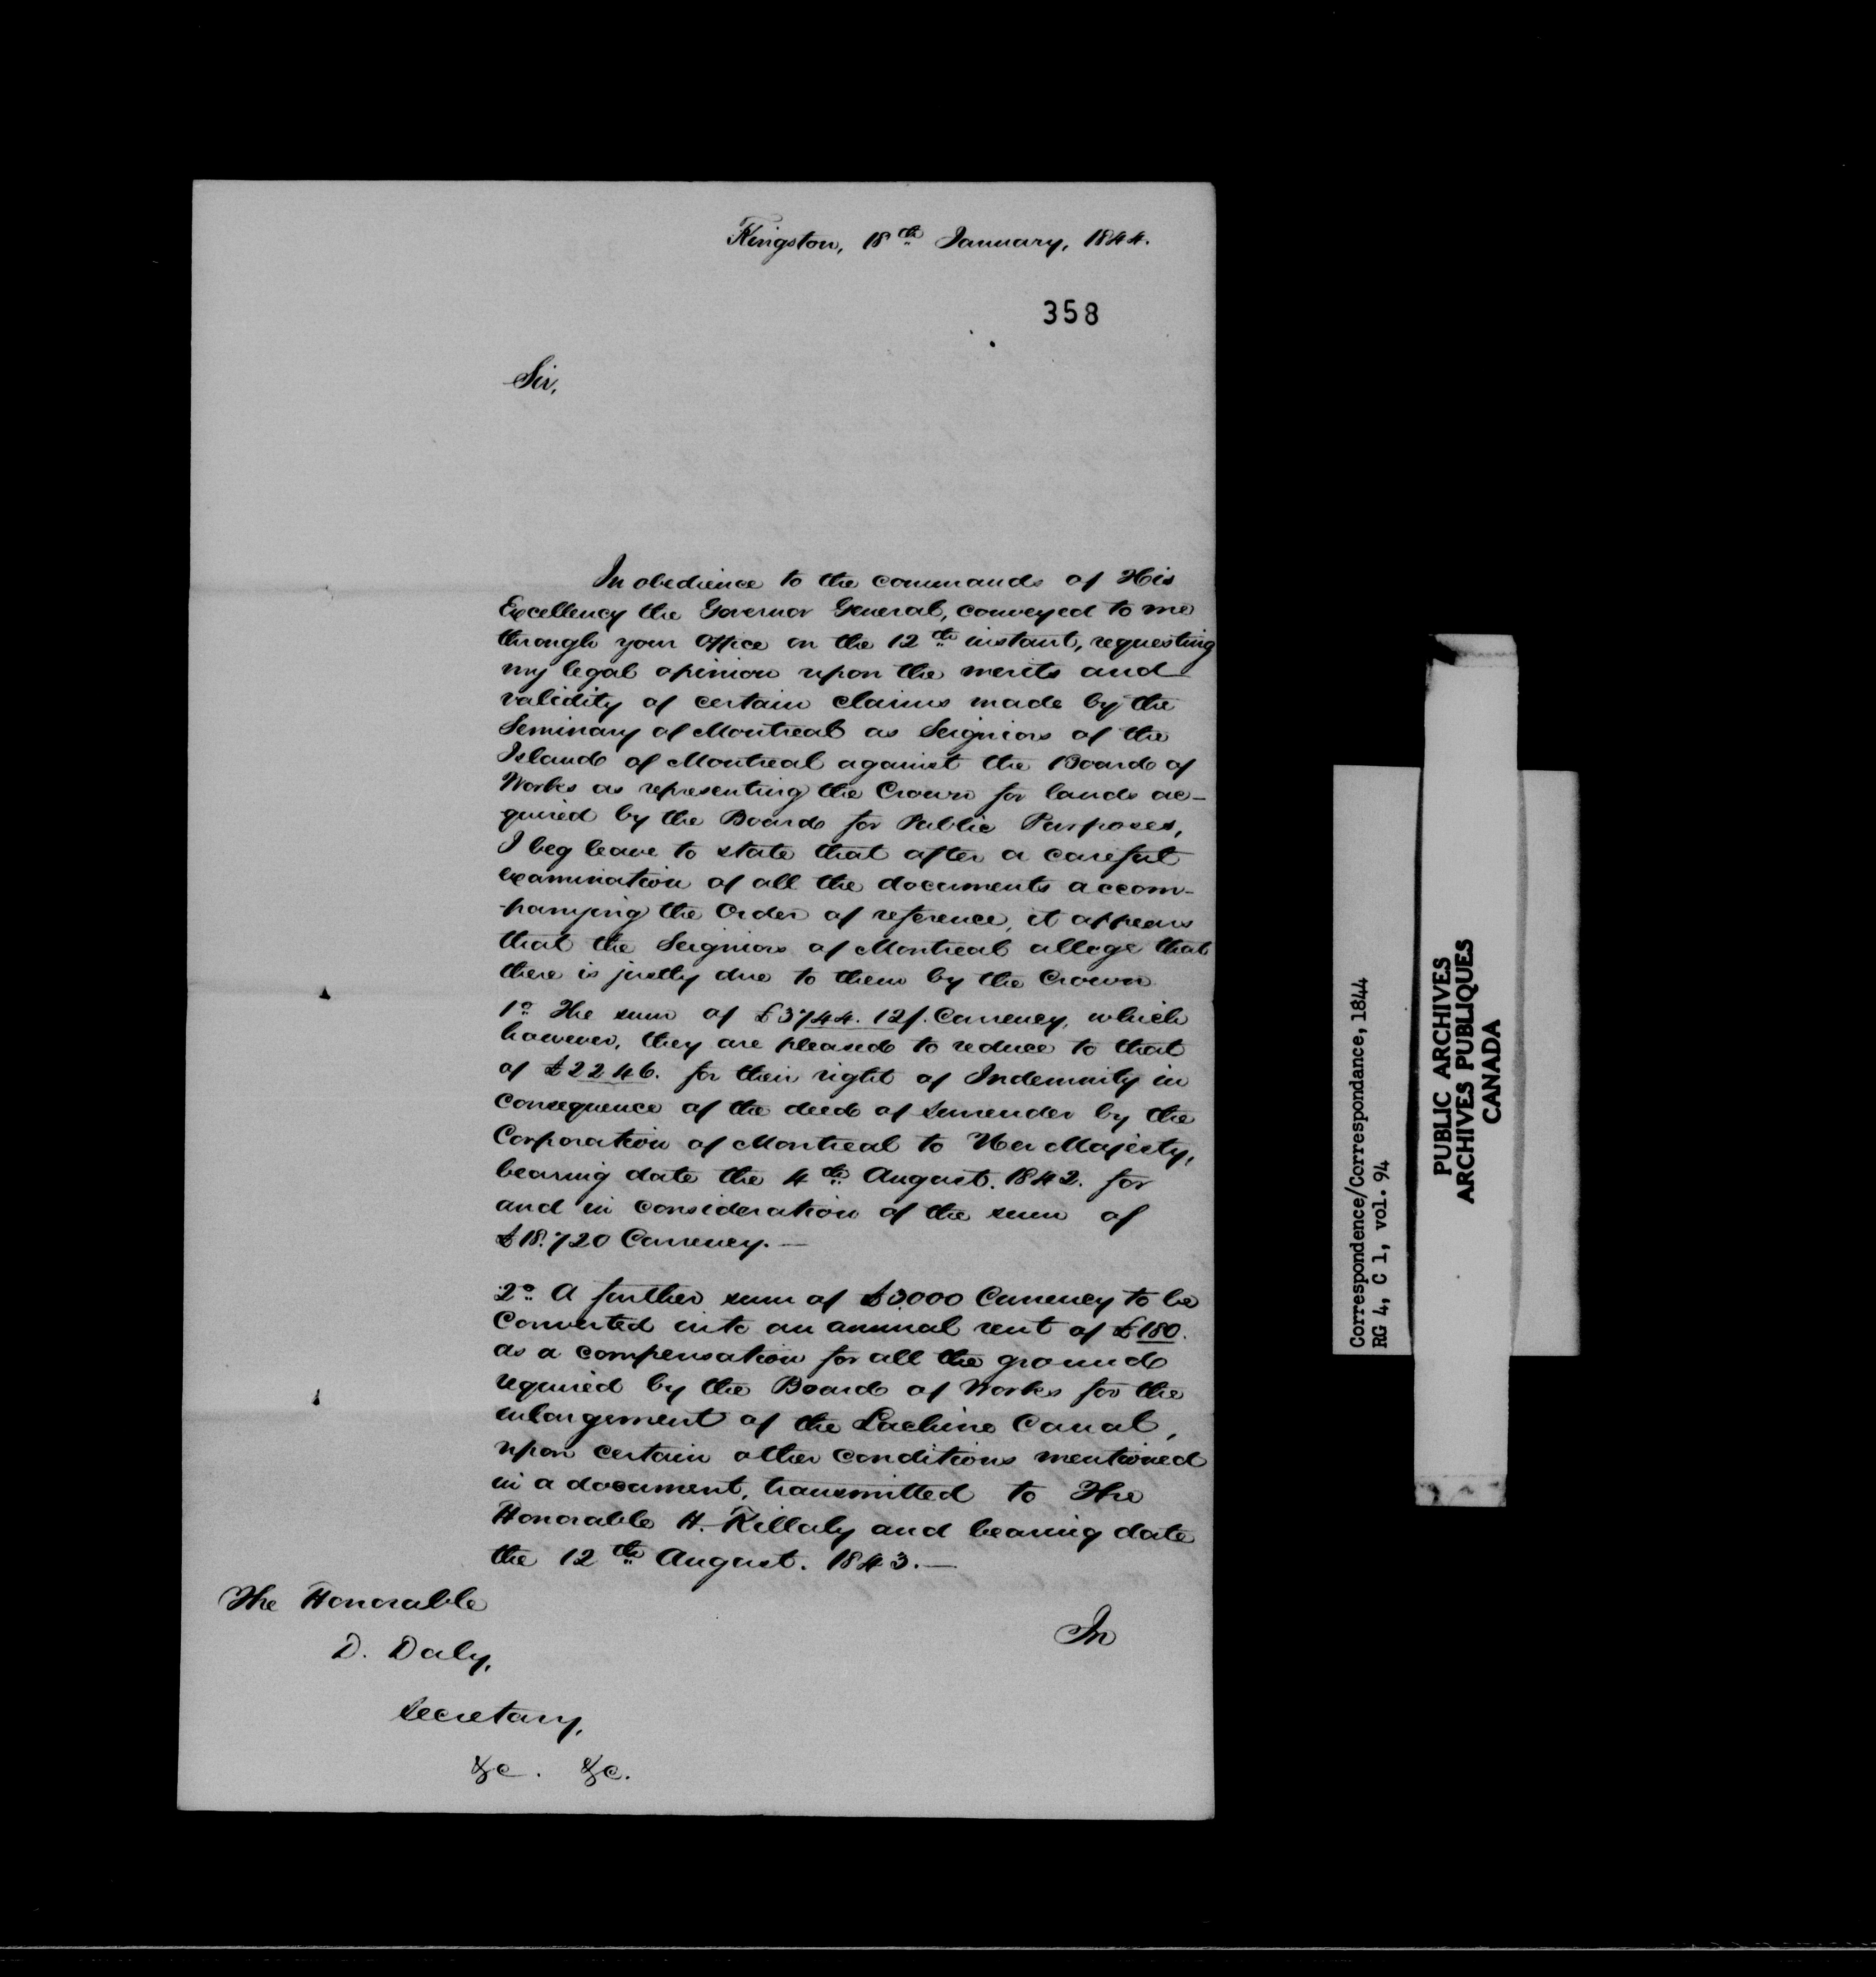 Kingston, 18th January, 1844.
358
Sir,
In obedience to the commands of His
Excellency the Governor General, conveyed to me
through your Office on the 12th instant, requesting
my legal opinion upon the merits and
validity of certain claims made by the
Seminary of Montreal as Seigniors of the
Island of Montreal against the Board of
Works as representing the Crown for lands ac-
quired by the Board for Public Purposes,
I beg leave to state that after a careful
examination of all the documents accom-
-panying the Order of reference, it appears
that the Seigniors of Montreal allege that
there is justly due to them by the Crown
1o The sum of £3744. 12/. Currency, which
however, they are pleased to reduce to that
of £2246. for their right of Indemnity in
consequence of the deed of surrender by the
Corporation of Montreal to Her Majesty,
bearing date the 4th August. 1842. for
and in consideration of the sum of
£18.720 Currency.—
2o A further sum of £3000 Currency to be
Converted into an annual rent of £180.
as a compensation for all the ground
required by the Board of Works for the
enlargement of the Lachine Canal,
upon certain other conditions mentioned
in a document, transmitted to The
Honorable H. Killaly and bearing date
the 12th August. 1843.—
The Honorable
D. Daly,
Secretary,
&c. &c.
In
Correspondence/Correspondance, 1844
RG 4, C 1, vol. 94
PUBLIC ARCHIVES
ARCHIVES PUBLIQUES
CANADA